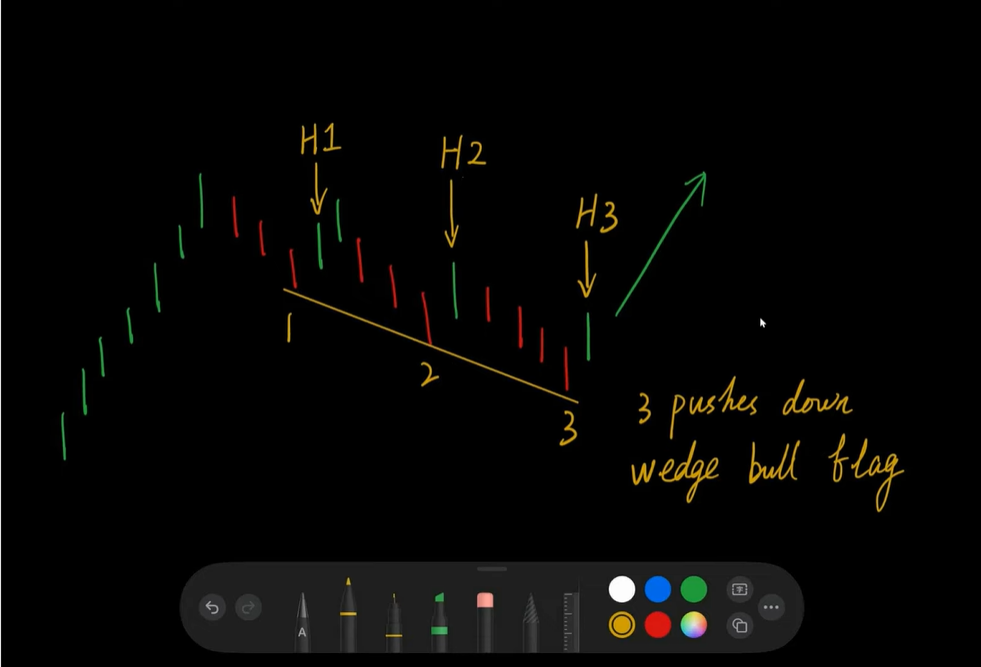 H1
H2
H3
1
2
3
3 pushes down
wedge bull flag
A